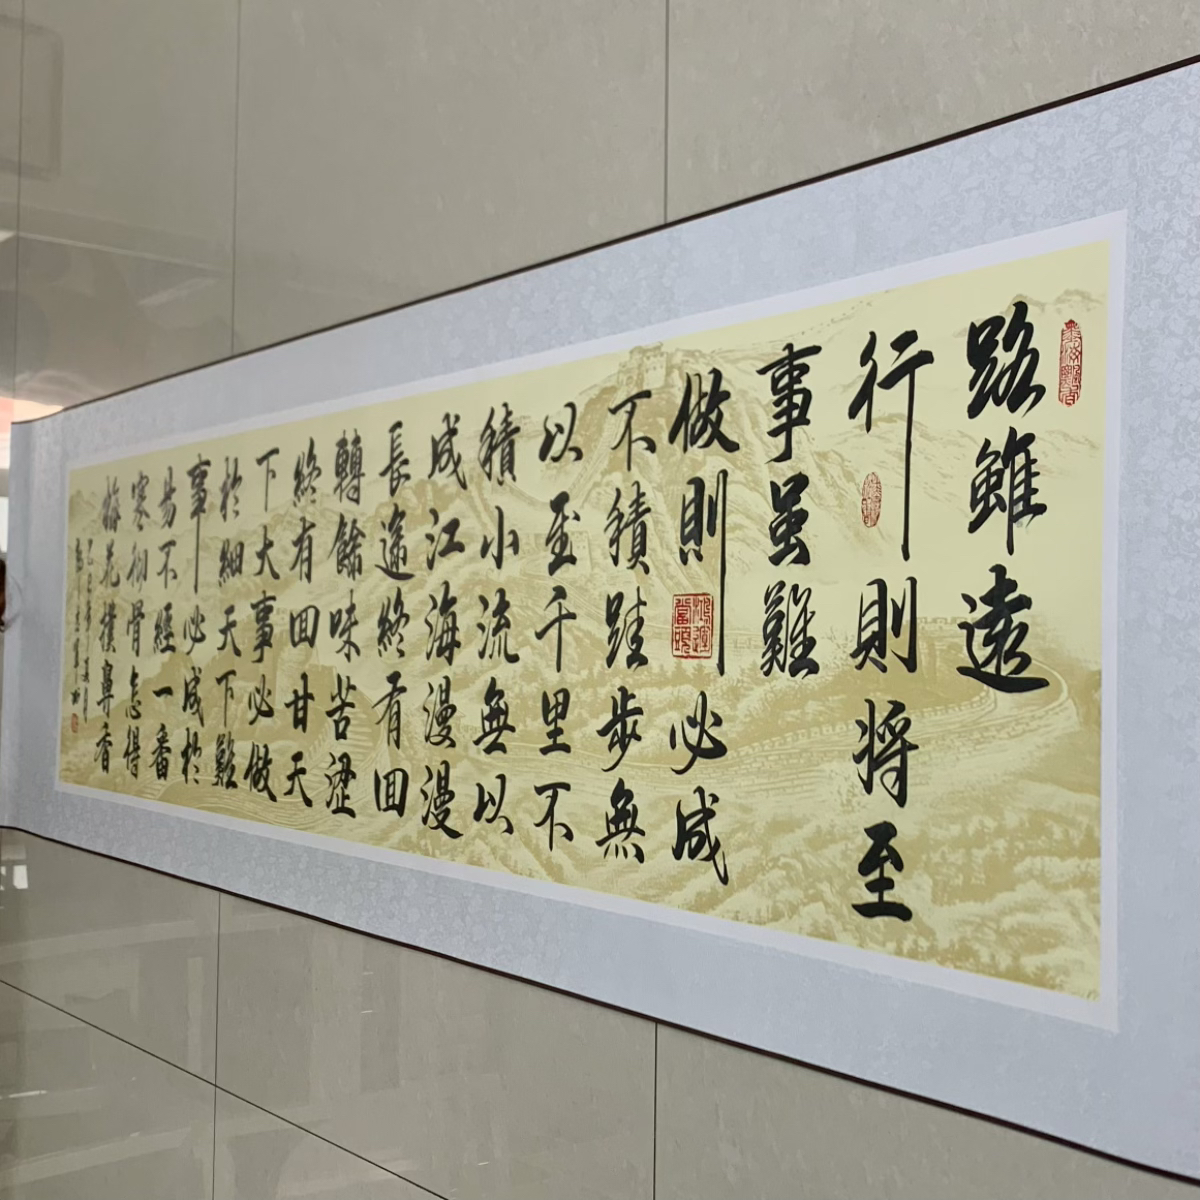 路雖遠
行則將至
事虽難
做則必成
不積跬步無
以至千里不
積小流無以
成江海漫漫
長途終有回
轉餘味苦澀
終有回甘天
下大事必做
於細天下難
事必成於
易不經一番
寒彻骨怎得
梅花撲鼻香
乙巳年
鴻運當頭